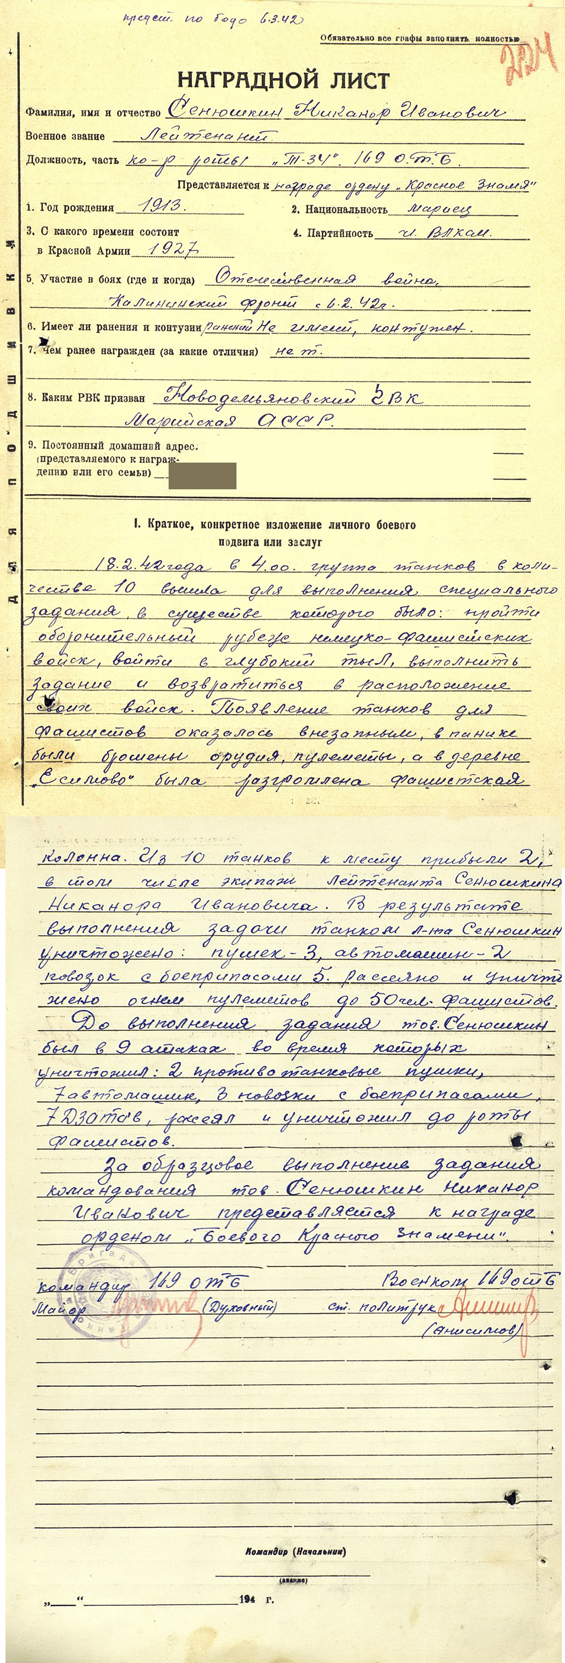 предст. по бодо 6.3.42
Обязательно все графы заполнять полностью
224
НАГРАДНОЙ ЛИСТ
Фамилия, имя и отчество Сенюшкин Никанор Иванович
Военное звание Лейтенант
Должность, часть ко-р роты „Т-34". 169 О.Т.Б.
Представляется к награде ордену „Красное Знамя"
1. Год рождения 1913. 2. Национальность мариец
3. С какого времени состоит 4. Партийность чл. ВЛКСМ.
в Красной Армии 1927
5. Участие в боях (где и когда) Отечественная война,
Калининский фронт с 6.2.42г.
6. Имеет ли ранения и контузии ранений не имеет, контужен.
7. Чем ранее награжден (за какие отличия) нет.
8. Каким РВК призван Новодемьяновский РВК
Марийская АССР.
9. Постоянный домашний адрес.
(представляемого к награж-
дению или его семьи)
ДЛЯ ПОДШИВКИ
I. Краткое, конкретное изложение личного боевого
подвига или заслуг
18.2.42 года в 4.00. группа танков в коли-
честве 10 вышла для выполнения специального
задания, в существе которого было: пройти
оборонительный рубеж немецко-фашистских
войск, войти в глубокий тыл, выполнить
задание и возвратиться в расположение
своих войск. Появление танков для
фашистов оказалось внезапным, в панике
были брошены орудия, пулеметы, а в деревне
„Есимово" была разгромлена фашистская
колонна. Из 10 танков к месту прибыли 2,
в том числе экипаж лейтенанта Сенюшкина
Никанора Ивановича. В результате
выполнения задачи танком л-та Сенюшкин
уничтожено: пушек-3, автомашин-2
повозок с боеприпасами 5. рассеяно и уничто
жено огнем пулеметов до 50 чел. фашистов.
До выполнения задания тов. Сенюшкин
был в 9 атаках во время которых
уничтожил: 2 противотанковые пушки,
7 автомашин, 3 повозки с боеприпасами,
7 ДЗОТов, рассеял и уничтожил до роты
фашистов.
За образцовое выполнение задания
командования тов. Сенюшкин Никанор
Иванович представляется к награде
орденом „Боевого Красного Знамени".
командир 169 отб Военком 169 отб
Майор (Духовный) ст. политрук
(Анисимов)
Командир (Начальник)
(звание)
„___"____________194 г.